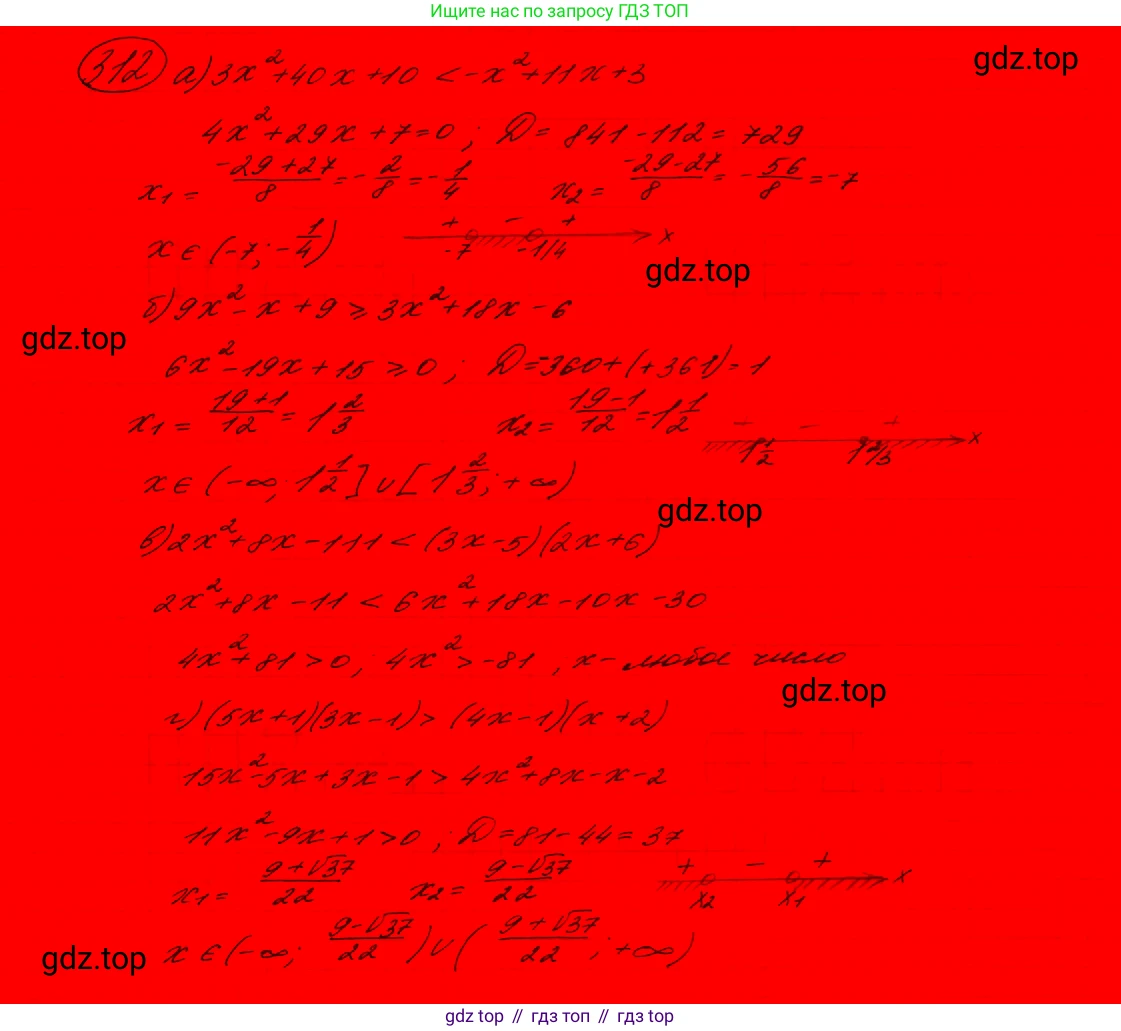 Ищите нас по запросу ГДЗ ТОП
312 а) 3x²+40x+10 < -x²+11x+3
gdz.top
4x²+29x+7=0 ; D= 841-112= 729
x₁= (-29+27)/8 = -2/8 = -1/4 x₂= (-29-27)/8 = -56/8 = -7
x ∈ (-7; -1/4) + - + -7 -1/4 x
gdz.top
б) 9x²-x+9 ≥ 3x²+18x-6
gdz.top
6x²-19x+15 ≥ 0 ; D=-360+(+361)=1
x₁= (19+1)/12 = 1 2/3 x₂= (19-1)/12 = 1 1/2 + - + 1 1/2 1 2/3 x
x ∈ (-∞; 1 1/2] ∪ [1 2/3; +∞)
gdz.top
в) 2x²+8x-111 < (3x-5)(2x+6)
2x²+8x-11 < 6x²+18x-10x-30
4x²+81>0 ; 4x²>-81 , x- любое число
gdz.top
г) (5x+1)(3x-1) > (4x-1)(x+2)
15x²-5x+3x-1 > 4x²+8x-x-2
11x²-9x+1>0 ; D=81-44=37
x₁= (9+√37)/22 x₂= (9-√37)/22 + - + x₂ x₁ x
x ∈ (-∞; (9-√37)/22) ∪ ((9+√37)/22; +∞)
gdz.top
gdz top // гдз топ // gdz top